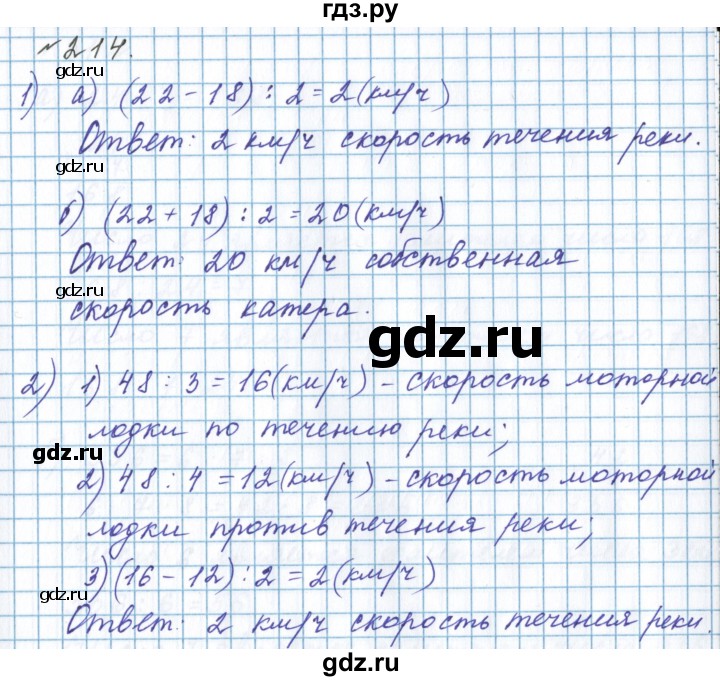 гдз.ру
№214.
gdz.ru
1) а) (22-18):2=2(км/ч)
gdz.ru
Ответ: 2 км/ч скорость течения реки.
б) (22+18):2=20(км/ч)
Ответ: 20 км/ч собственная
gdz.ru
скорость катера.
gdz.ru
2) 1) 48:3=16(км/ч) - скорость моторной
лодки по течению реки;
gdz.ru
2) 48:4=12(км/ч) - скорость моторной
лодки против течения реки;
gdz.ru
3) (16-12):2=2(км/ч)
Ответ: 2 км/ч скорость течения реки.
gdz.ru
gdz.ru